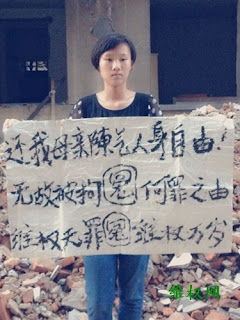 还我母亲陳人身自由!
无故被拘冤何罪之由
维权无罪冤维权万岁
维权网